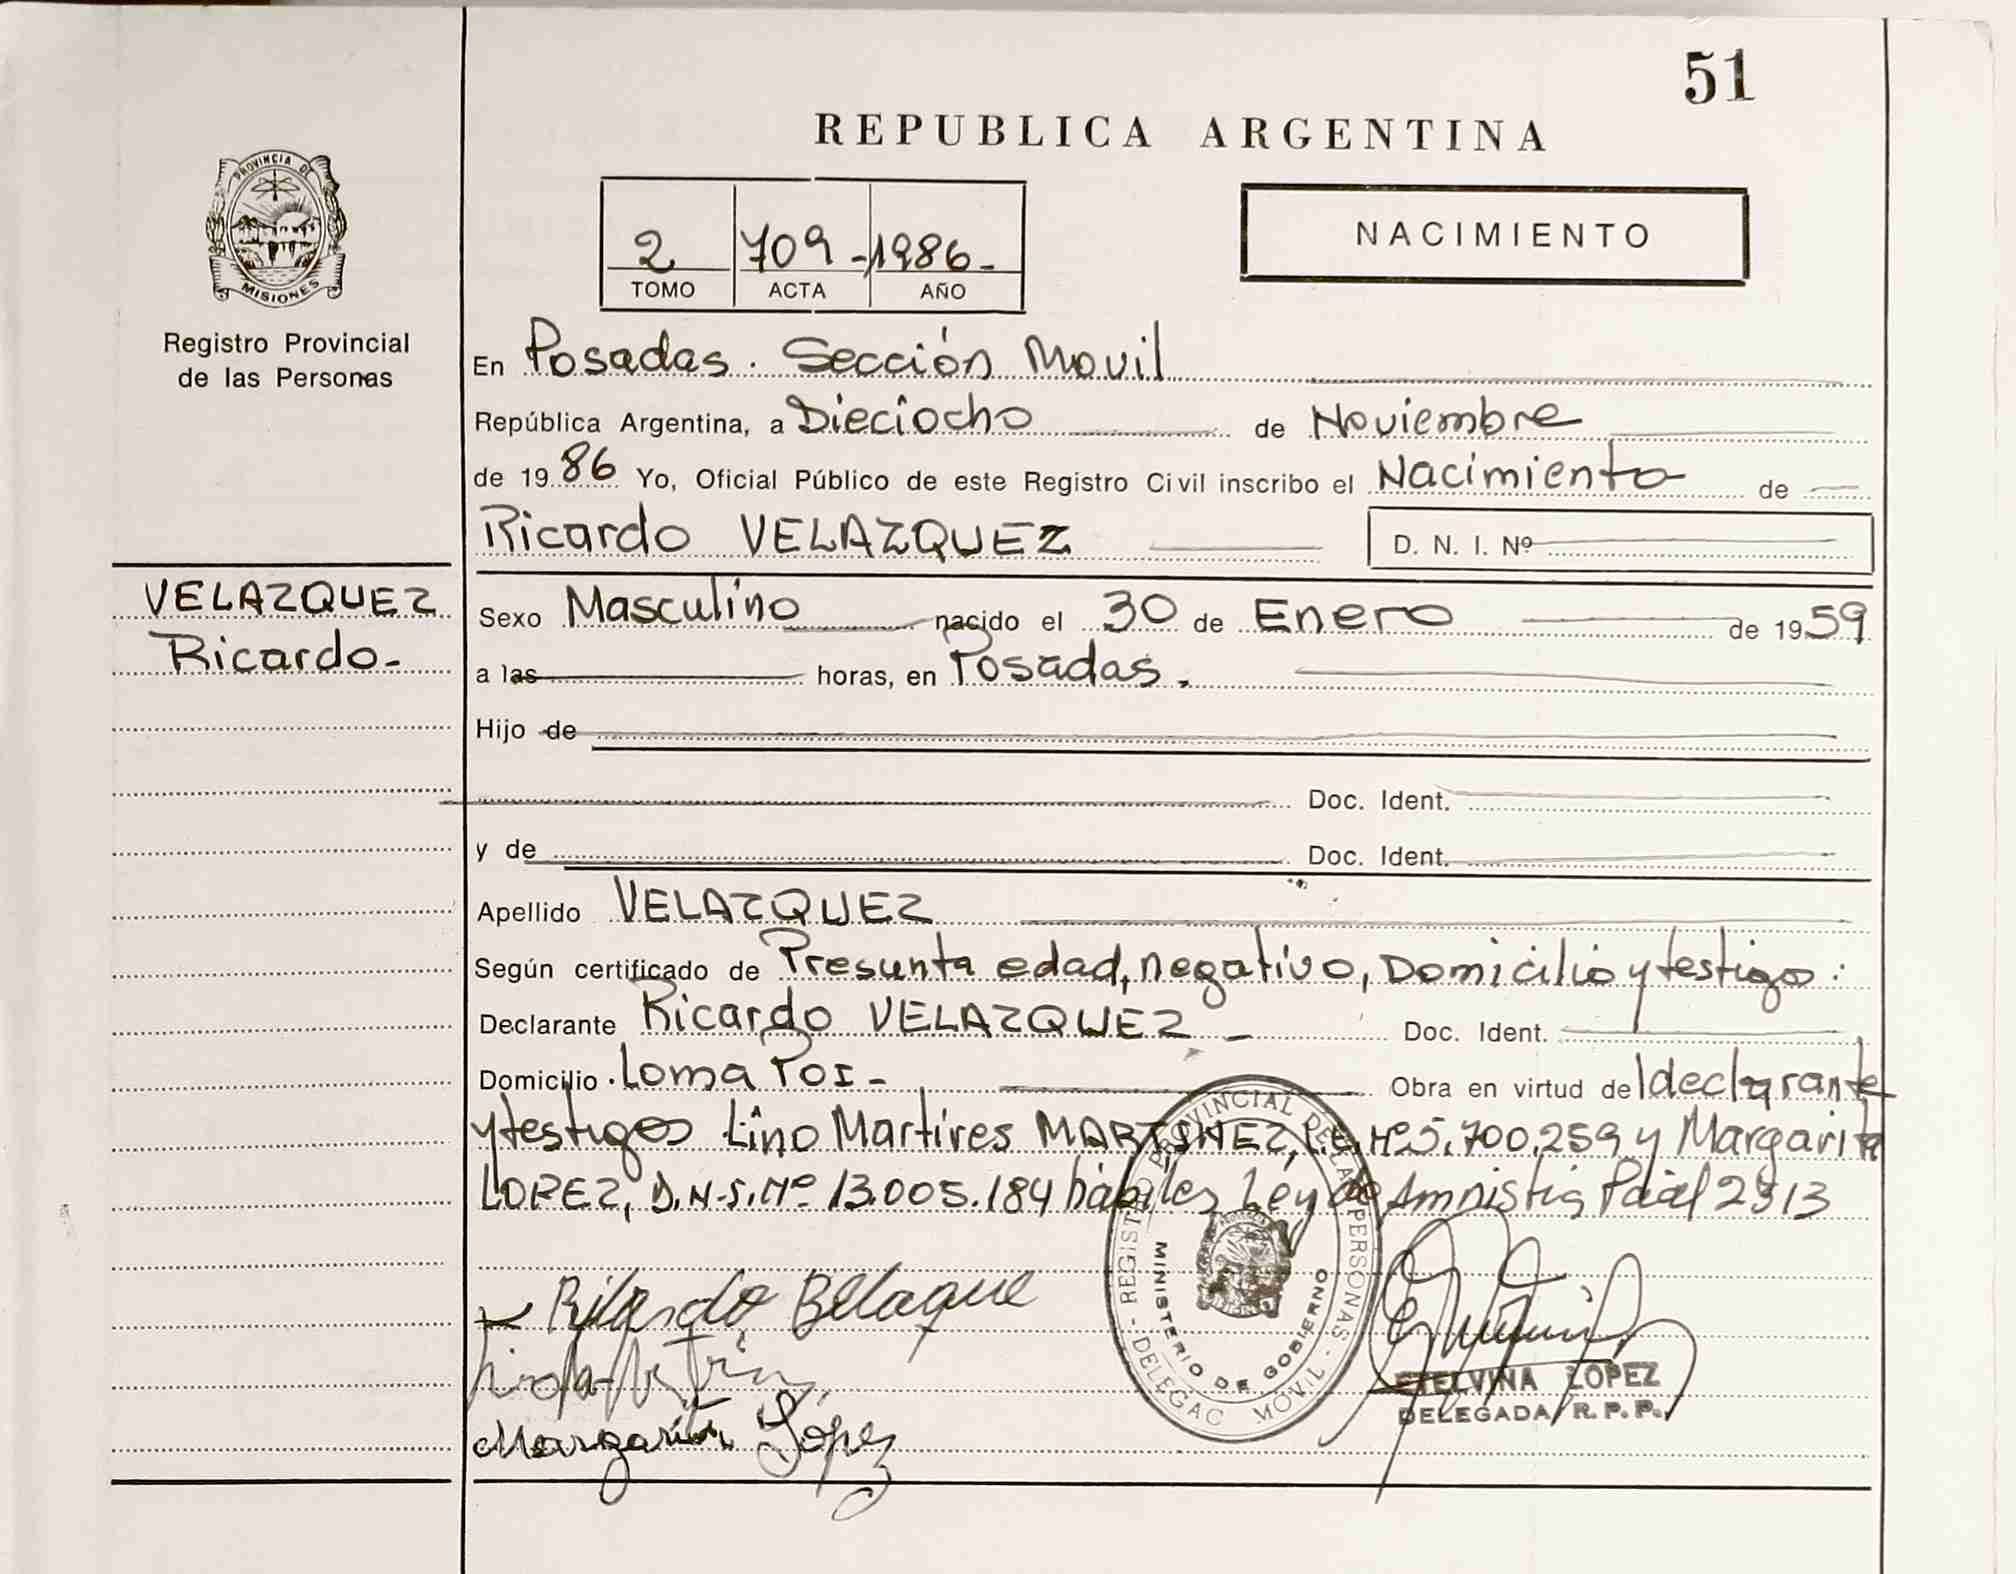 51
REPUBLICA ARGENTINA
PROVINCIA DE
MISIONES
Registro Provincial
de las Personas
2 709 - 1986 -
TOMO ACTA AÑO
NACIMIENTO
En Posadas. Sección Movil
República Argentina, a Dieciocho de Noviembre
de 1986 Yo, Oficial Público de este Registro Civil inscribo el Nacimiento de
Ricardo VELAZQUEZ D. N. I. Nº
VELAZQUEZ
Ricardo-
Sexo Masculino nacido el 30 de Enero de 1959
a las horas, en Posadas.
Hijo de
Doc. Ident.
y de Doc. Ident.
Apellido VELAZQUEZ
Según certificado de Presunta edad, negativo, Domicilio y testigo:
Declarante Ricardo VELAZQUEZ - Doc. Ident.
Domicilio. Loma Poi - Obra en virtud del declarante
y testigos Lino Martires MARTINEZ, L.E. Nº 5.700.259 y Margarita
LOPEZ, D.N.I. Nº 13.005.184 hábiles Ley de Amnistia Pcial 2313
Ricardo Belaque
Margarita López
REGISTRO PROVINCIAL DE LAS PERSONAS
MINISTERIO DE GOBIERNO
- DELEGAC MÓVIL -
ETELVINA LOPEZ
DELEGADA R. P. P.